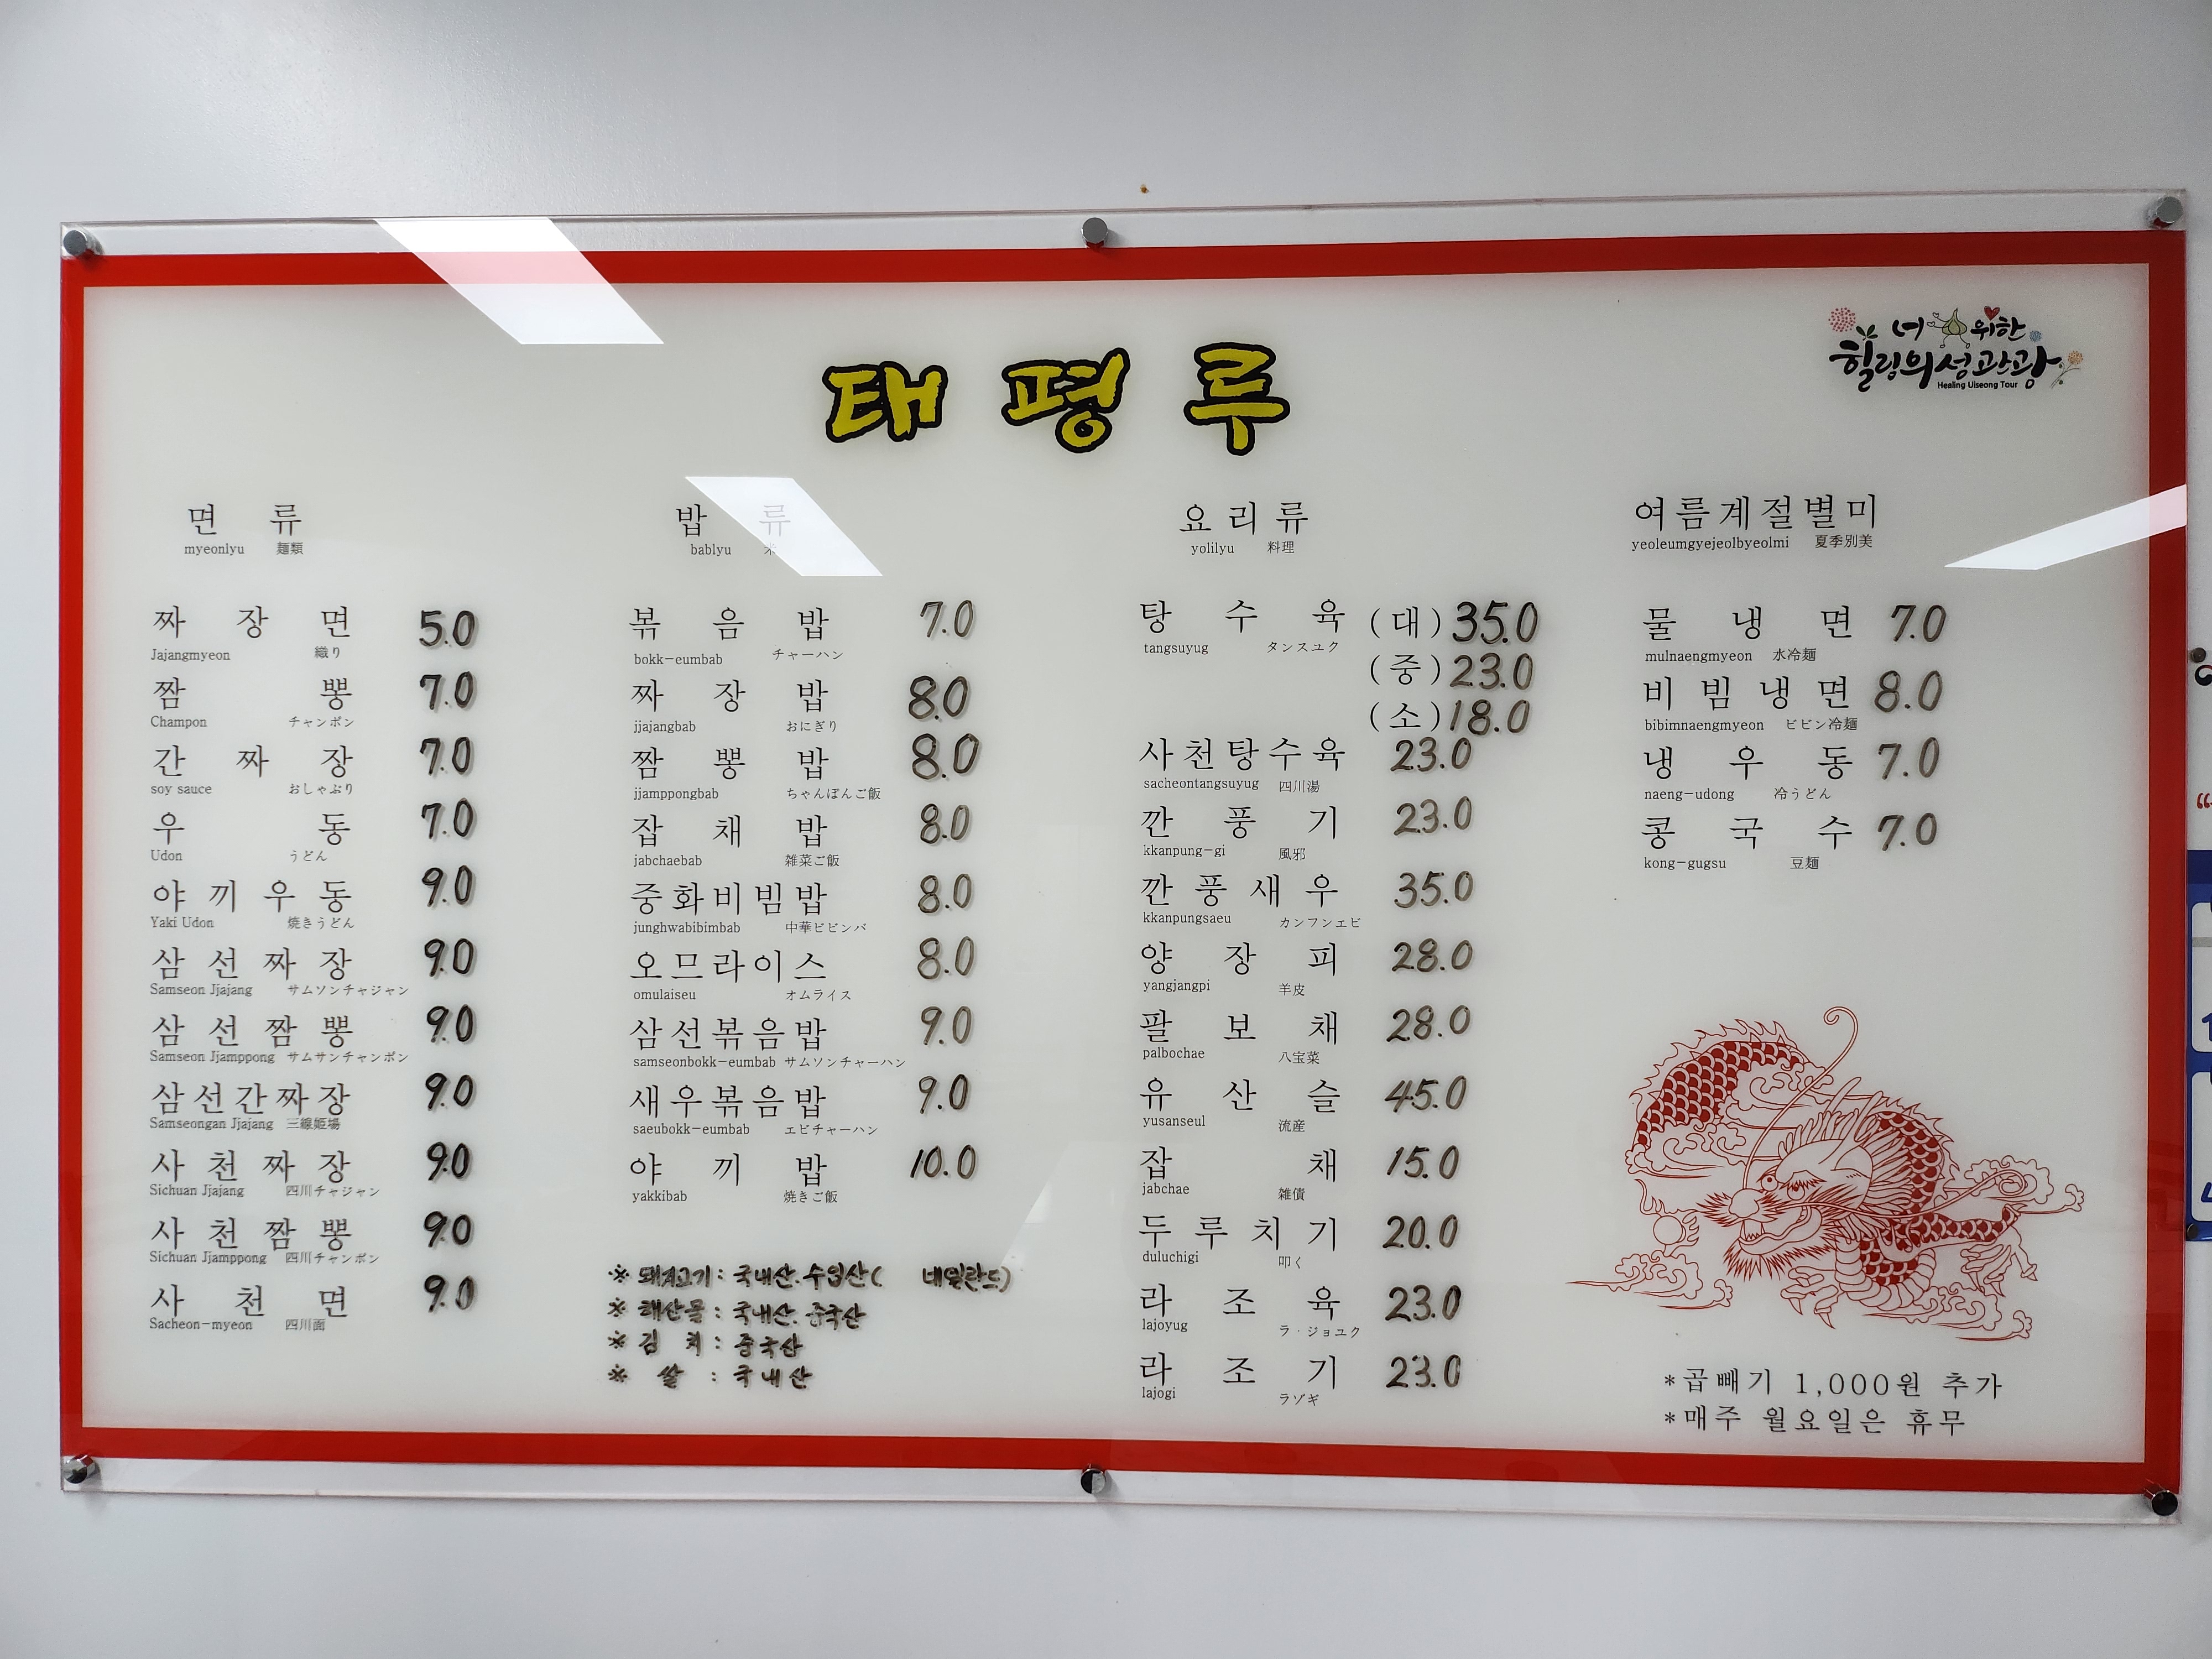 너 위한
힐링의성관광
Healing Uiseong Tour
태평루
면류
myeonlyu 麺類
짜장면 5.0
Jajangmyeon 織り
짬뽕 7.0
Champon チャンポン
간짜장 7.0
soy sauce おしゃぶり
우동 7.0
Udon うどん
야끼우동 9.0
Yaki Udon 焼きうどん
삼선짜장 9.0
Samseon Jjajang サムソンチャジャン
삼선짬뽕 9.0
Samseon Jjamppong サムサンチャンポン
삼선간짜장 9.0
Samseongan Jjajang 三線姫場
사천짜장 9.0
Sichuan Jjajang 四川チャジャン
사천짬뽕 9.0
Sichuan Jjamppong 四川チャンポン
사천면 9.0
Sacheon-myeon 四川面
밥류
bablyu 米
볶음밥 7.0
bokk-eumbab チャーハン
짜장밥 8.0
jjajangbab おにぎり
짬뽕밥 8.0
jjamppongbab ちゃんぽんご飯
잡채밥 8.0
jabchaebab 雑菜ご飯
중화비빔밥 8.0
junghwabibimbab 中華ビビンバ
오므라이스 8.0
omulaiseu オムライス
삼선볶음밥 9.0
samseonbokk-eumbab サムソンチャーハン
새우볶음밥 9.0
saeubokk-eumbab エビチャーハン
야끼밥 10.0
yakkibab 焼きご飯
※ 돼지고기 : 국내산. 수입산( 네덜란드)
※ 해산물 : 국내산. 중국산
※ 김치 : 중국산
※ 쌀 : 국내산
요리류
yolilyu 料理
탕수육 (대) 35.0
tangsuyug タンスユク
(중) 23.0
(소) 18.0
사천탕수육 23.0
sacheontangsuyug 四川湯
깐풍기 23.0
kkanpung-gi 風邪
깐풍새우 35.0
kkanpungsaeu カンフンエビ
양장피 28.0
yangjangpi 羊皮
팔보채 28.0
palbochae 八宝菜
유산슬 45.0
yusanseul 流産
잡채 15.0
jabchae 雑債
두루치기 20.0
duluchigi 叩く
라조육 23.0
lajoyug ラ·ジョユク
라조기 23.0
lajogi ラゾギ
여름계절별미
yeoleumgyejeolbyeolmi 夏季別美
물냉면 7.0
mulnaengmyeon 水冷麺
비빔냉면 8.0
bibimnaengmyeon ビビン冷麺
냉우동 7.0
naeng-udong 冷うどん
콩국수 7.0
kong-gugsu 豆麺
*곱빼기 1,000원 추가
*매주 월요일은 휴무